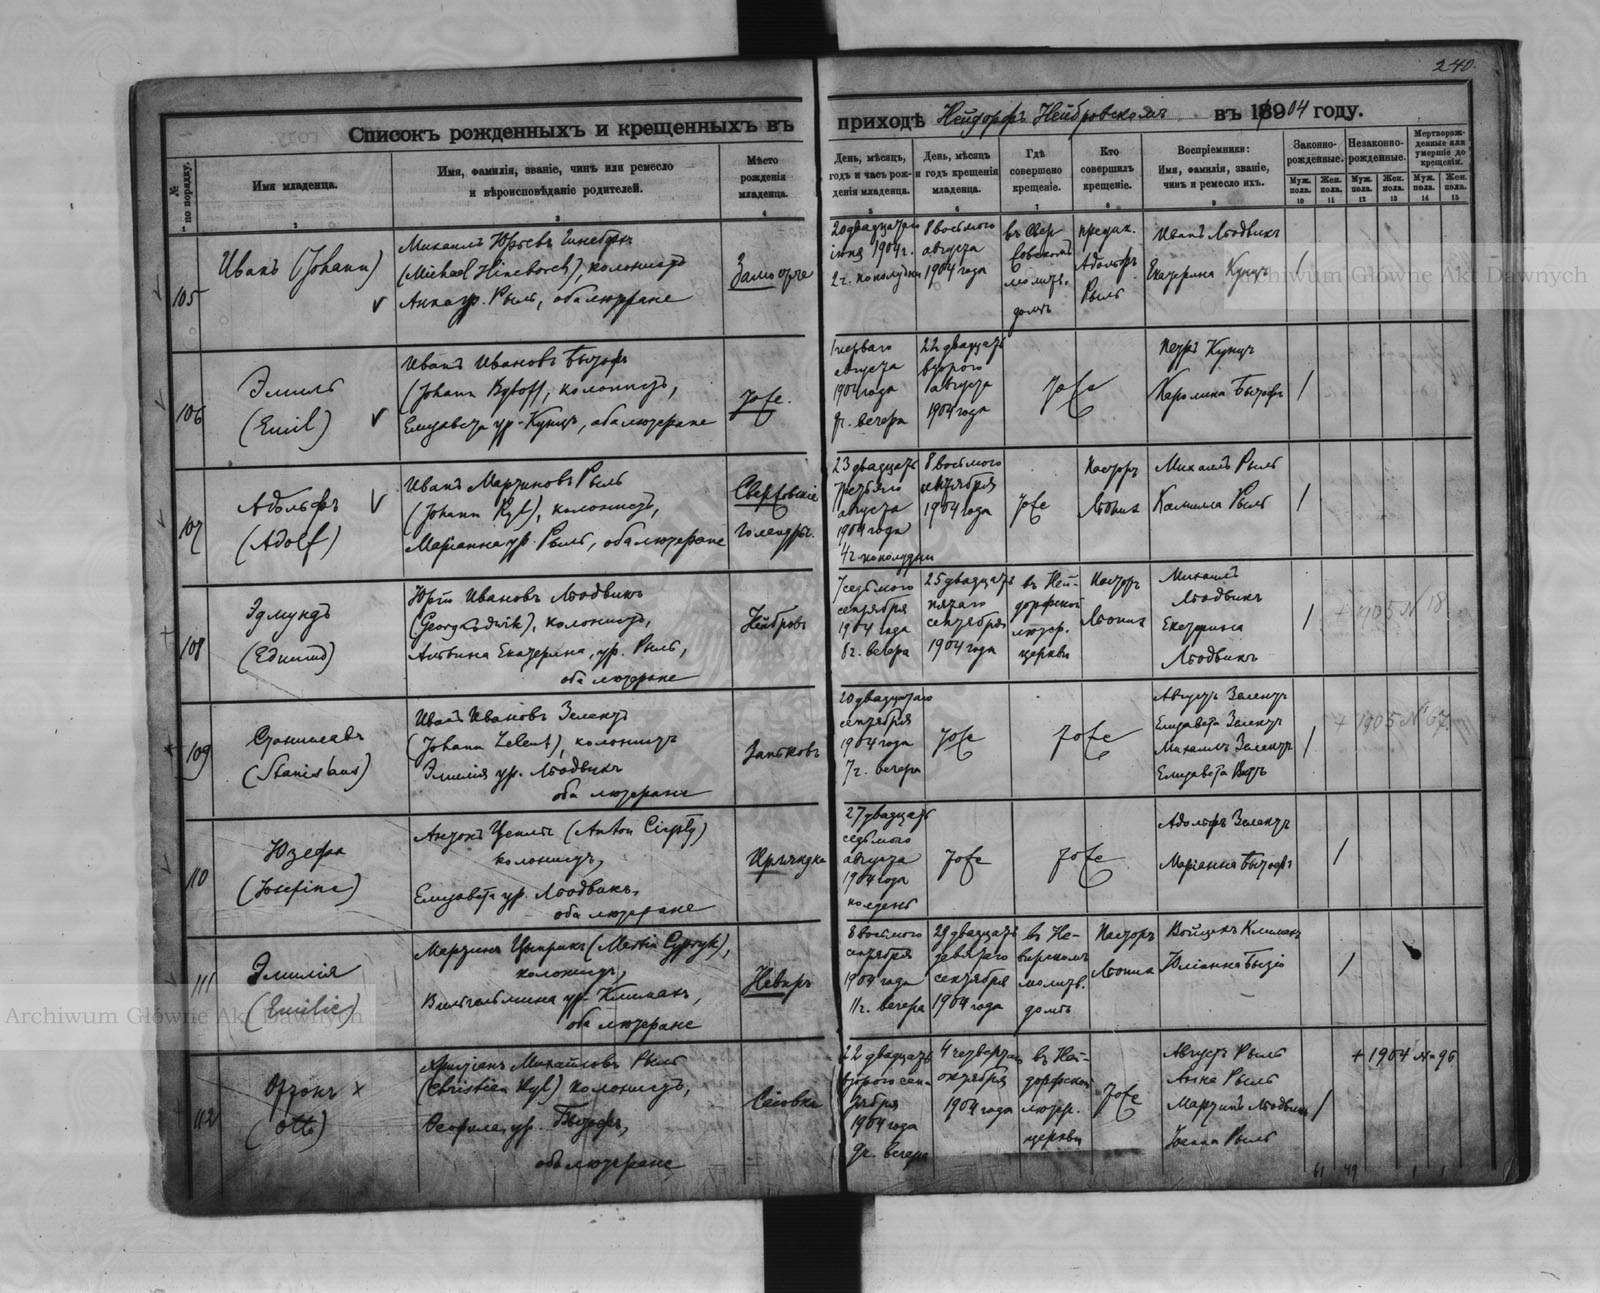 240.
Списокъ рожденныхъ и крещенныхъ въ приходѣ Нейдорфъ Нейбровскомъ въ 1904 году.
№ по порядку.
Имя младенца.
Имя, фамилія, званіе, чинъ или ремесло и вѣроисповѣданіе родителей.
Мѣсто рожденія младенца.
День, мѣсяцъ, годъ и часъ рожденія младенца.
День, мѣсяцъ и годъ крещенія младенца.
Гдѣ совершено крещеніе.
Кто совершилъ крещеніе.
Воспріемники: Имя, фамилія, званіе, чинъ и ремесло ихъ.
Законнорожденные.
Незаконнорожденные.
Мертворожденные или умершіе до крещенія.
Муж. пола. Жен. пола. Муж. пола. Жен. пола. Муж. пола. Жен. пола.
1 2 3 4 5 6 7 8 9 10 11 12 13 14 15
105
Иванъ (Johann)
Михаилъ Юрьевъ
(Michael Hineborch), колонистъ
Анна ур. Рыль, оба лютеране
20 двадцатаго
іюня 1904 г.
2 ч. пополудни
8 восьмого
августа
1904 года
въ
молитв.
домѣ
Адольфъ
Рыль
Иванъ Людвикъ
Екатерина Кунцъ
1
106
Эмиль
(Emil)
Иванъ Ивановъ Бытофъ
(Johann Bytoff), колонистъ,
Елизавета ур. Кунцъ, оба лютеране
Тоже.
1 перваго
августа
1904 года
9 ч. вечера
22 двадцать
второго
августа
1904 года
Тоже
Петръ Кунцъ
Каролина Бытофъ
1
107
Адольфъ
(Adolf)
Иванъ Мартиновъ Рыль
(Johann Ryl), колонистъ,
Маріанна ур. Рыль, оба лютеране
Свержовскіе
голендры.
23 двадцать
третьяго
августа
1904 года
4 ч. пополудни
8 восьмого
октября
1904 года
Тоже
Пасторъ
Михаилъ Рыль
Рыль
1
108
Эдмундъ
(Edmund)
Юрій Ивановъ Людвикъ
(Georg Ludwik), колонистъ,
Екатерина, ур. Рыль,
оба лютеране
Нейбровъ
7 седьмого
сентября
1904 года
8 ч. вечера
25 двадцать
пятаго
сентября
1904 года
въ Ней-
дорфской
лютер.
церкви
Пасторъ
Михаилъ
Людвикъ
Екатерина
Людвикъ
1
+ 1905 № 18
109
Станиславъ
(Stanislaus)
Иванъ Ивановъ Зелентъ
(Johann Zelent), колонистъ
Эмилія ур. Людвикъ
оба лютеране
20 двадцатаго
сентября
1904 года
7 ч. вечера
Тоже
Тоже
Августъ Зелентъ
Елизавета Зелентъ
Михаилъ Зелентъ
Елизавета
1
+ 1905 № 67
110
Юзефа
(Josefine)
Антонъ (Anton)
колонистъ,
Елизавета ур. Людвикъ,
оба лютеране
27 двадцать
седьмого
августа
1904 года
полдень
Тоже
Тоже
Адольфъ Зелентъ
Маріанна Бытофъ
1
111
Эмилія
(Emilie)
Мартинъ Цыприкъ (Martin Cypryk),
колонистъ,
Вильгельмина ур. Климакъ,
оба лютеране
Невиръ
8 восьмого
сентября
1904 года
11 ч. вечера
29 двадцать
девятаго
сентября
1904 года
въ Не-
вирскомъ
молитв.
домѣ
Пасторъ
Войцехъ Климакъ
Юліанна
1
112
Оттонъ x
(Otto)
Христіанъ Михайловъ Рыль
(Christian Ryl) колонистъ,
ур. Бытофъ,
оба лютеране
22 двадцать
второго сен-
тября
1904 года
9 ч. вечера
4 четвертаго
октября
1904 года
въ Ней-
дорфской
лютер.
церкви
Тоже
Августъ Рыль
Анна Рыль
Мартинъ Людвикъ
Рыль
1
+ 1904 № 96
61 49 1 1
Archiwum Główne Akt Dawnych
Archiwum Główne Akt Dawnych